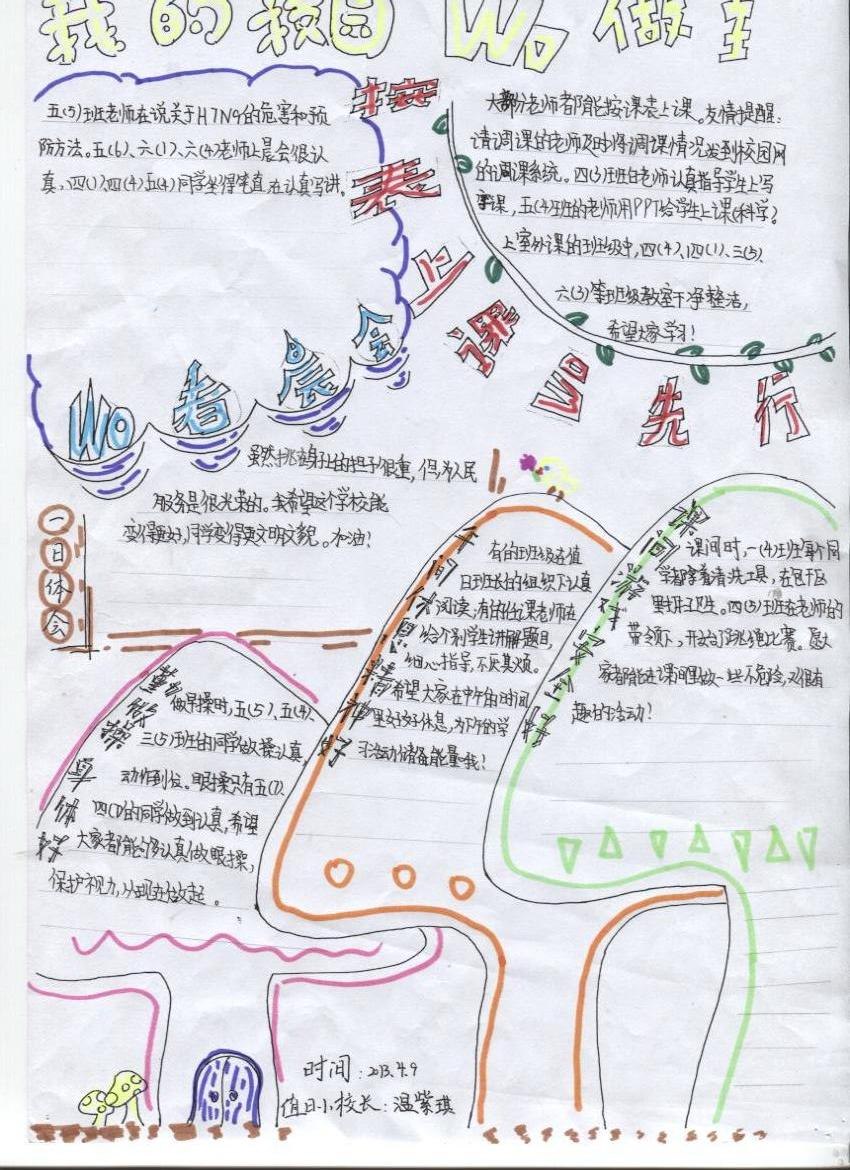 我的校园Wo做主
五(5)班老师在说关于H7N9的危害和预
防方法。五(6)、六(1)、六(4)老师上晨会很认
真、四(1)四(4)五(4)同学坐得笔直,在认真写讲。
Wo看晨会
按表上课Wo先行
大部分老师者都能按课表上课。友情提醒:
请调课的老师及时将调课情况发到校园网
的调课系统。四(3)班白老师认真指导学生上写
字课,五(4)班的老师用PPT给学生上课(科学)。
上室外课的班级中,四(4)、四(1)、三(5)、
六(3)等班级教室干净整洁,
希望大家学习!
一日体会
虽然挑在身上的担子很重,但为人民
服务是很光荣的。我希望这个学校能
变得更好,同学变得更文明文貌。加油!
勤做操身体好
做早操时,五(5)、五(4)、
三(5)班的同学做操认真,
动作到位。眼操只有五(1)、
四(1)的同学做到认真,希望
大家都能够认真做眼操,
保护视力,从现在做起。
午间休息精神好
有的班级在值
日班长的组织下认真
阅读,有的任课老师在
给个别学生讲解题目,
细心指导,不厌其烦。
希望大家在中午的时间
里好好休息,为下午的学
习活动储备能量哦!
课间游戏安全好
课间时,一(4)班每个同
学都拿着清洗工具,在包干区
里打扫卫生。四(3)班在老师的
带领下,开始了跳绳比赛。愿大
家者都能在课间里做一些不危险,又很有
趣的活动!
时间:2013.4.9
值日小校长:温紫琪